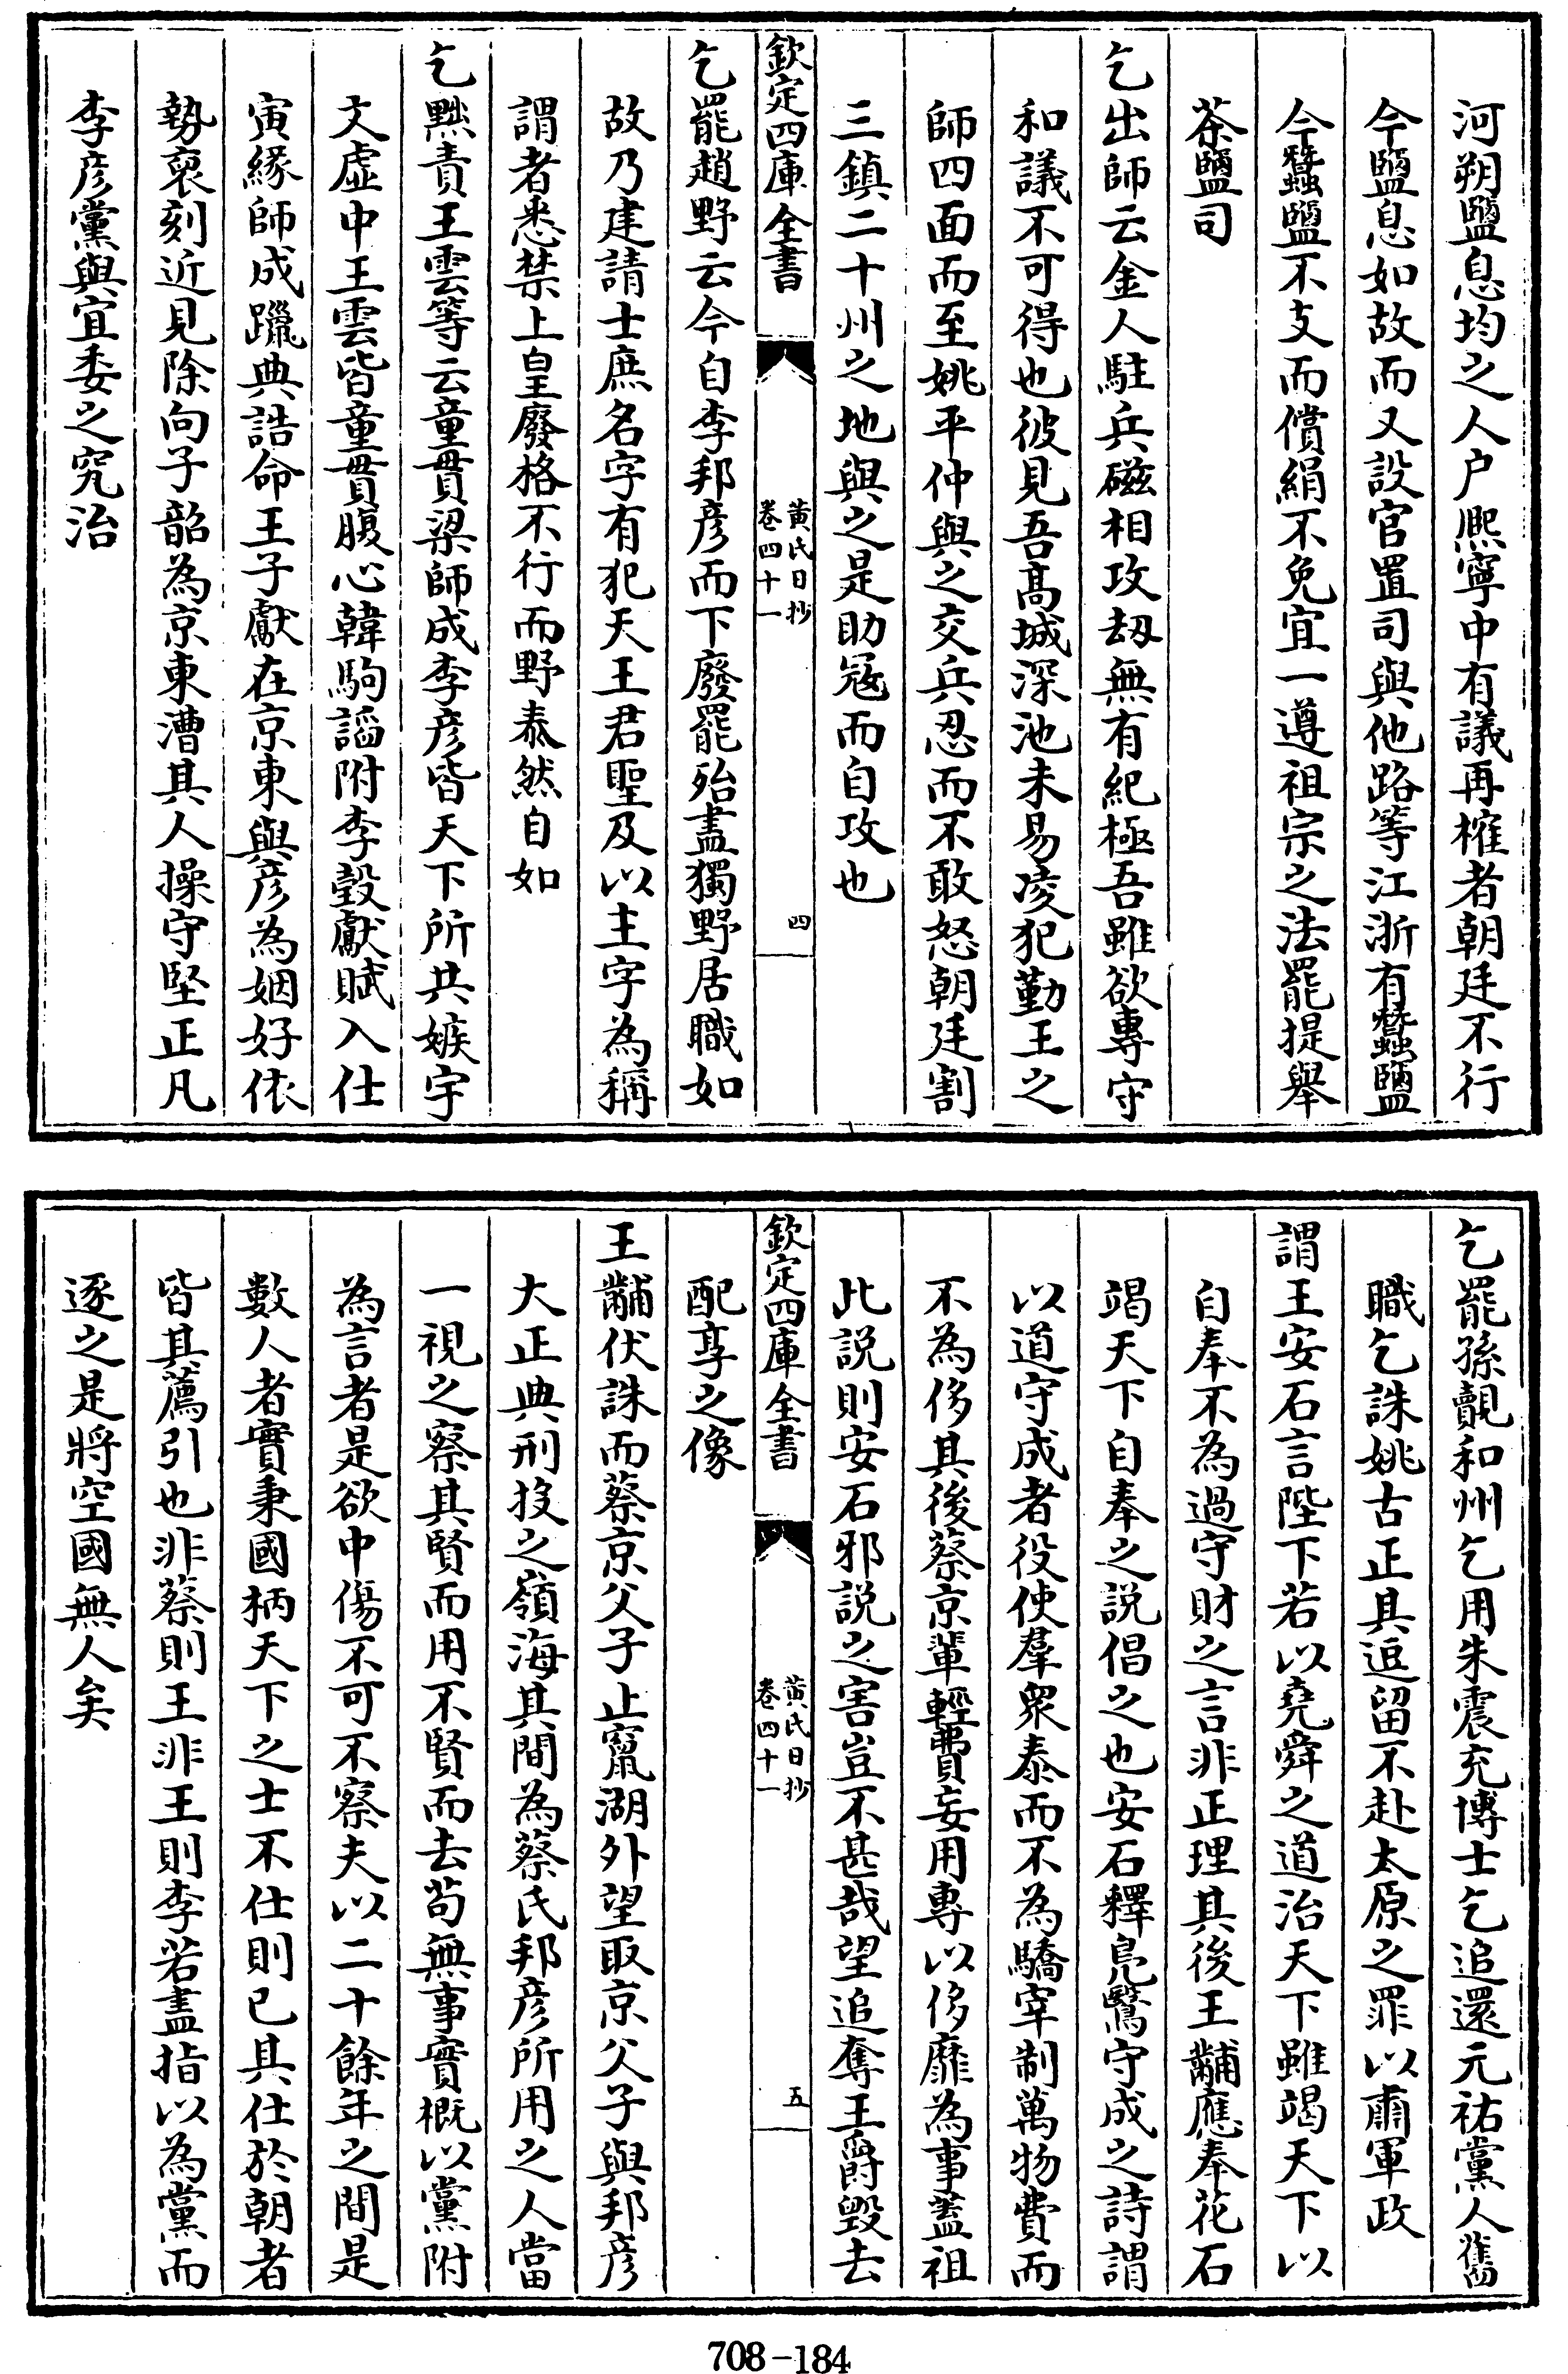 河朔鹽息均之人户熈寧中有議再榷者朝廷不行
今鹽息如故而又設官置司與他路等江浙有蠶鹽
今蠶鹽不支而償絹不免宜一遵祖宗之法罷提舉
茶鹽司
乞出師云金人駐兵磁相攻刼無有紀極吾雖欲專守
和議不可得也彼見吾髙城深池未易凌犯勤王之
師四面而至姚平仲與之交兵忍而不敢怒朝廷割
三鎮二十州之地與之是助冦而自攻也
欽定四庫全書
黃氏日抄
卷四十一
四
乞罷趙野云今自李邦彦而下廢罷殆盡獨野居職如
故乃建請士庶名字有犯天王君聖及以主字為稱
謂者悉禁上皇廢格不行而野泰然自如
乞黜責王雲等云童貫梁師成李彦皆天下所共嫉宇
文虛中王雲皆童貫腹心韓駒謟附李彀獻賦入仕
寅緣師成躐典誥命王子獻在京東與彦為姻好依
勢裒刻近見除向子韶為京東漕其人操守堅正凡
李彦黨與宜委之究治
乞罷孫覿和州乞用朱震充博士乞追還元祐黨人舊
職乞誅姚古正其逗留不赴太原之罪以肅軍政
謂王安石言陛下若以堯舜之道治天下雖竭天下以
自奉不為過守財之言非正理其後王黼應奉花石
竭天下自奉之説倡之也安石釋鳬鷖守成之詩謂
以道守成者役使羣衆泰而不為驕宰制萬物費而
不為侈其後蔡京輩輕費妄用專以侈靡為事蓋祖
此説則安石邪説之害豈不甚哉望追奪王爵毁去
欽定四庫全書
黃氏日抄
卷四十一
五
配享之像
王黼伏誅而蔡京父子止竄湖外望取京父子與邦彦
大正典刑投之嶺海其間為蔡氏邦彦所用之人當
一視之察其賢而用不賢而去茍無事實概以黨附
為言者是欲中傷不可不察夫以二十餘年之間是
數人者實秉國柄天下之士不仕則已其仕於朝者
皆其薦引也非蔡則王非王則李若盡指以為黨而
逐之是將空國無人矣
708-184